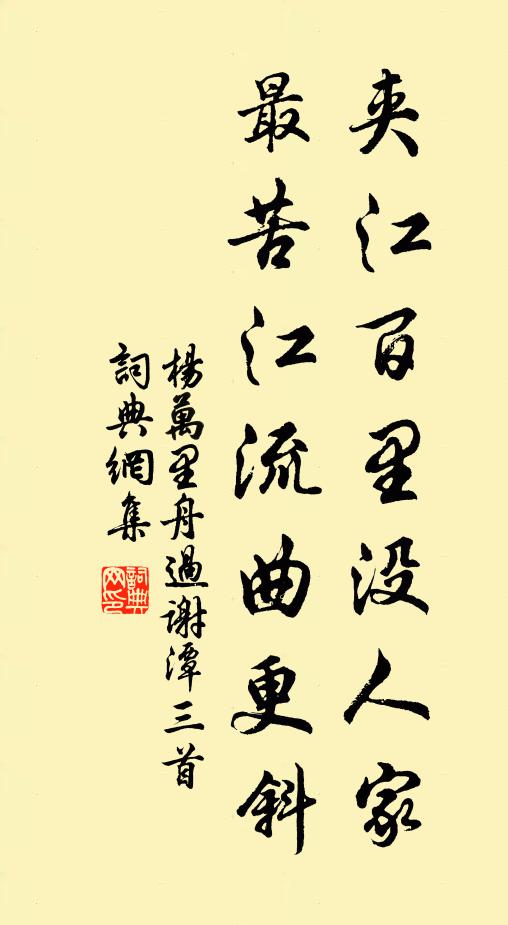 夹江百里没人家
最苦江流曲更斜
楊萬里舟過謝潭三首
詞典網集
詞典網印